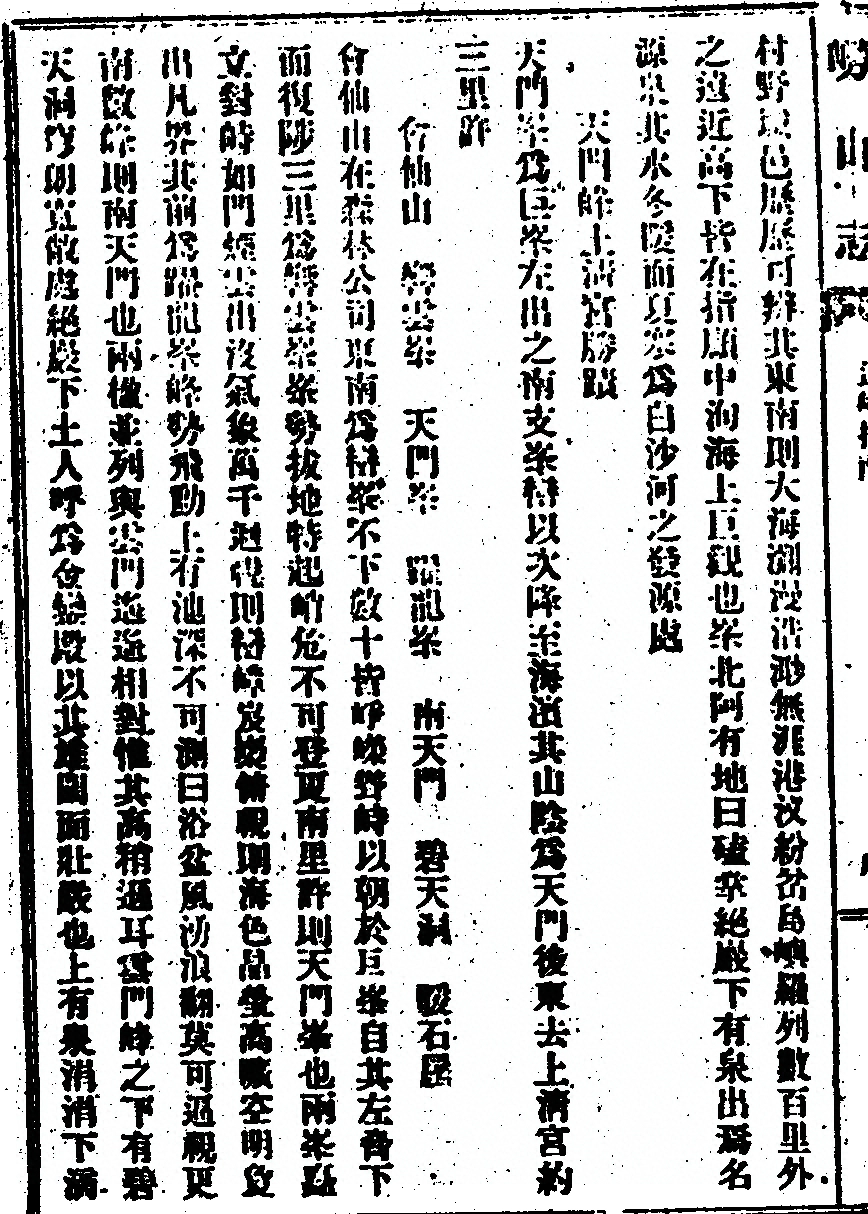 嶗山志
村野城邑歷歷可辨其東南則大海瀰漫浩渺無涯港汊紛岔島嶼羅列數百里外
之遠近高下皆在指顧中洵海上巨觀也峯北阿有地曰磕㧬絕巖下有泉出焉名
源泉其水冬暖而夏寒爲白沙河之發源處
天門峰上清宮勝蹟
天門峯爲巨峯左出之南支峯轉以次降至海濱其山陰爲天門後東去上清宮約
三里許
會仙山 礬雲峯 天門峯 躍龍峯 南天門 碧天洞 暖石屋
會仙山在森林公司東南爲羣峯不下數十皆崢嶸野峙以朝於巨峯自其左脊下
而復陟三里爲礬雲峯峯勢拔地特起峭危不可登夏南里許則天門峯也兩峯矗
立對峙如門煙雲出沒氣象萬千迴視則羣峰岌嶪俯視則海色晶瑩高曠空明敻
出凡界其前爲躍龍峯峰勢飛動上有池深不可測曰浴盆風湧浪翻莫可逼視更
南數峰則南天門也兩楹並列與雲門遙遙相對惟其高稍遜耳雲門峰之下有碧
天洞穹朗寬敞處絕巖下土人呼爲金鑾殿以其雄闊而壯嚴也上有泉涓涓下滴